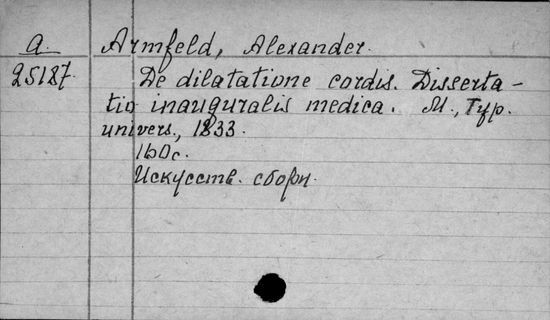 a. Armfeld, Alexander.
25187. De dilatatione cordis. Disserta-
tio inauguralis medica. M., Typ.
univers., 1833.
160 с.
Искусств. сборн.